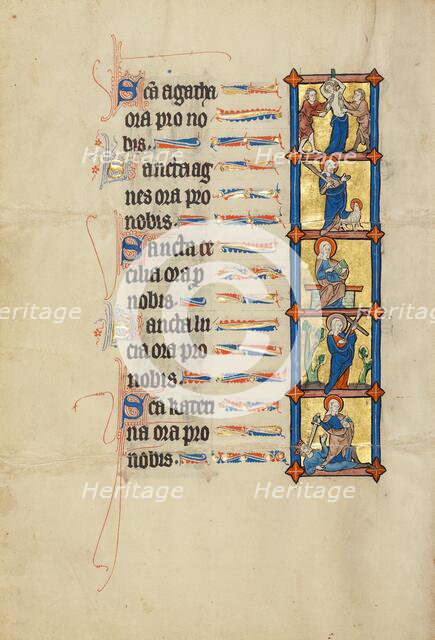 Sca agatha
ora pro no
bis.
Sancta ag
nes ora pro
nobis.
Sancta ce
cilia ora p
nobis.
Sancta lu
cia ora pro
nobis.
Sca kateri
na ora pro
nobis.
Heritage Heritage Heritage
Heritage Heritage Heritage
Heritage Heritage Heritage